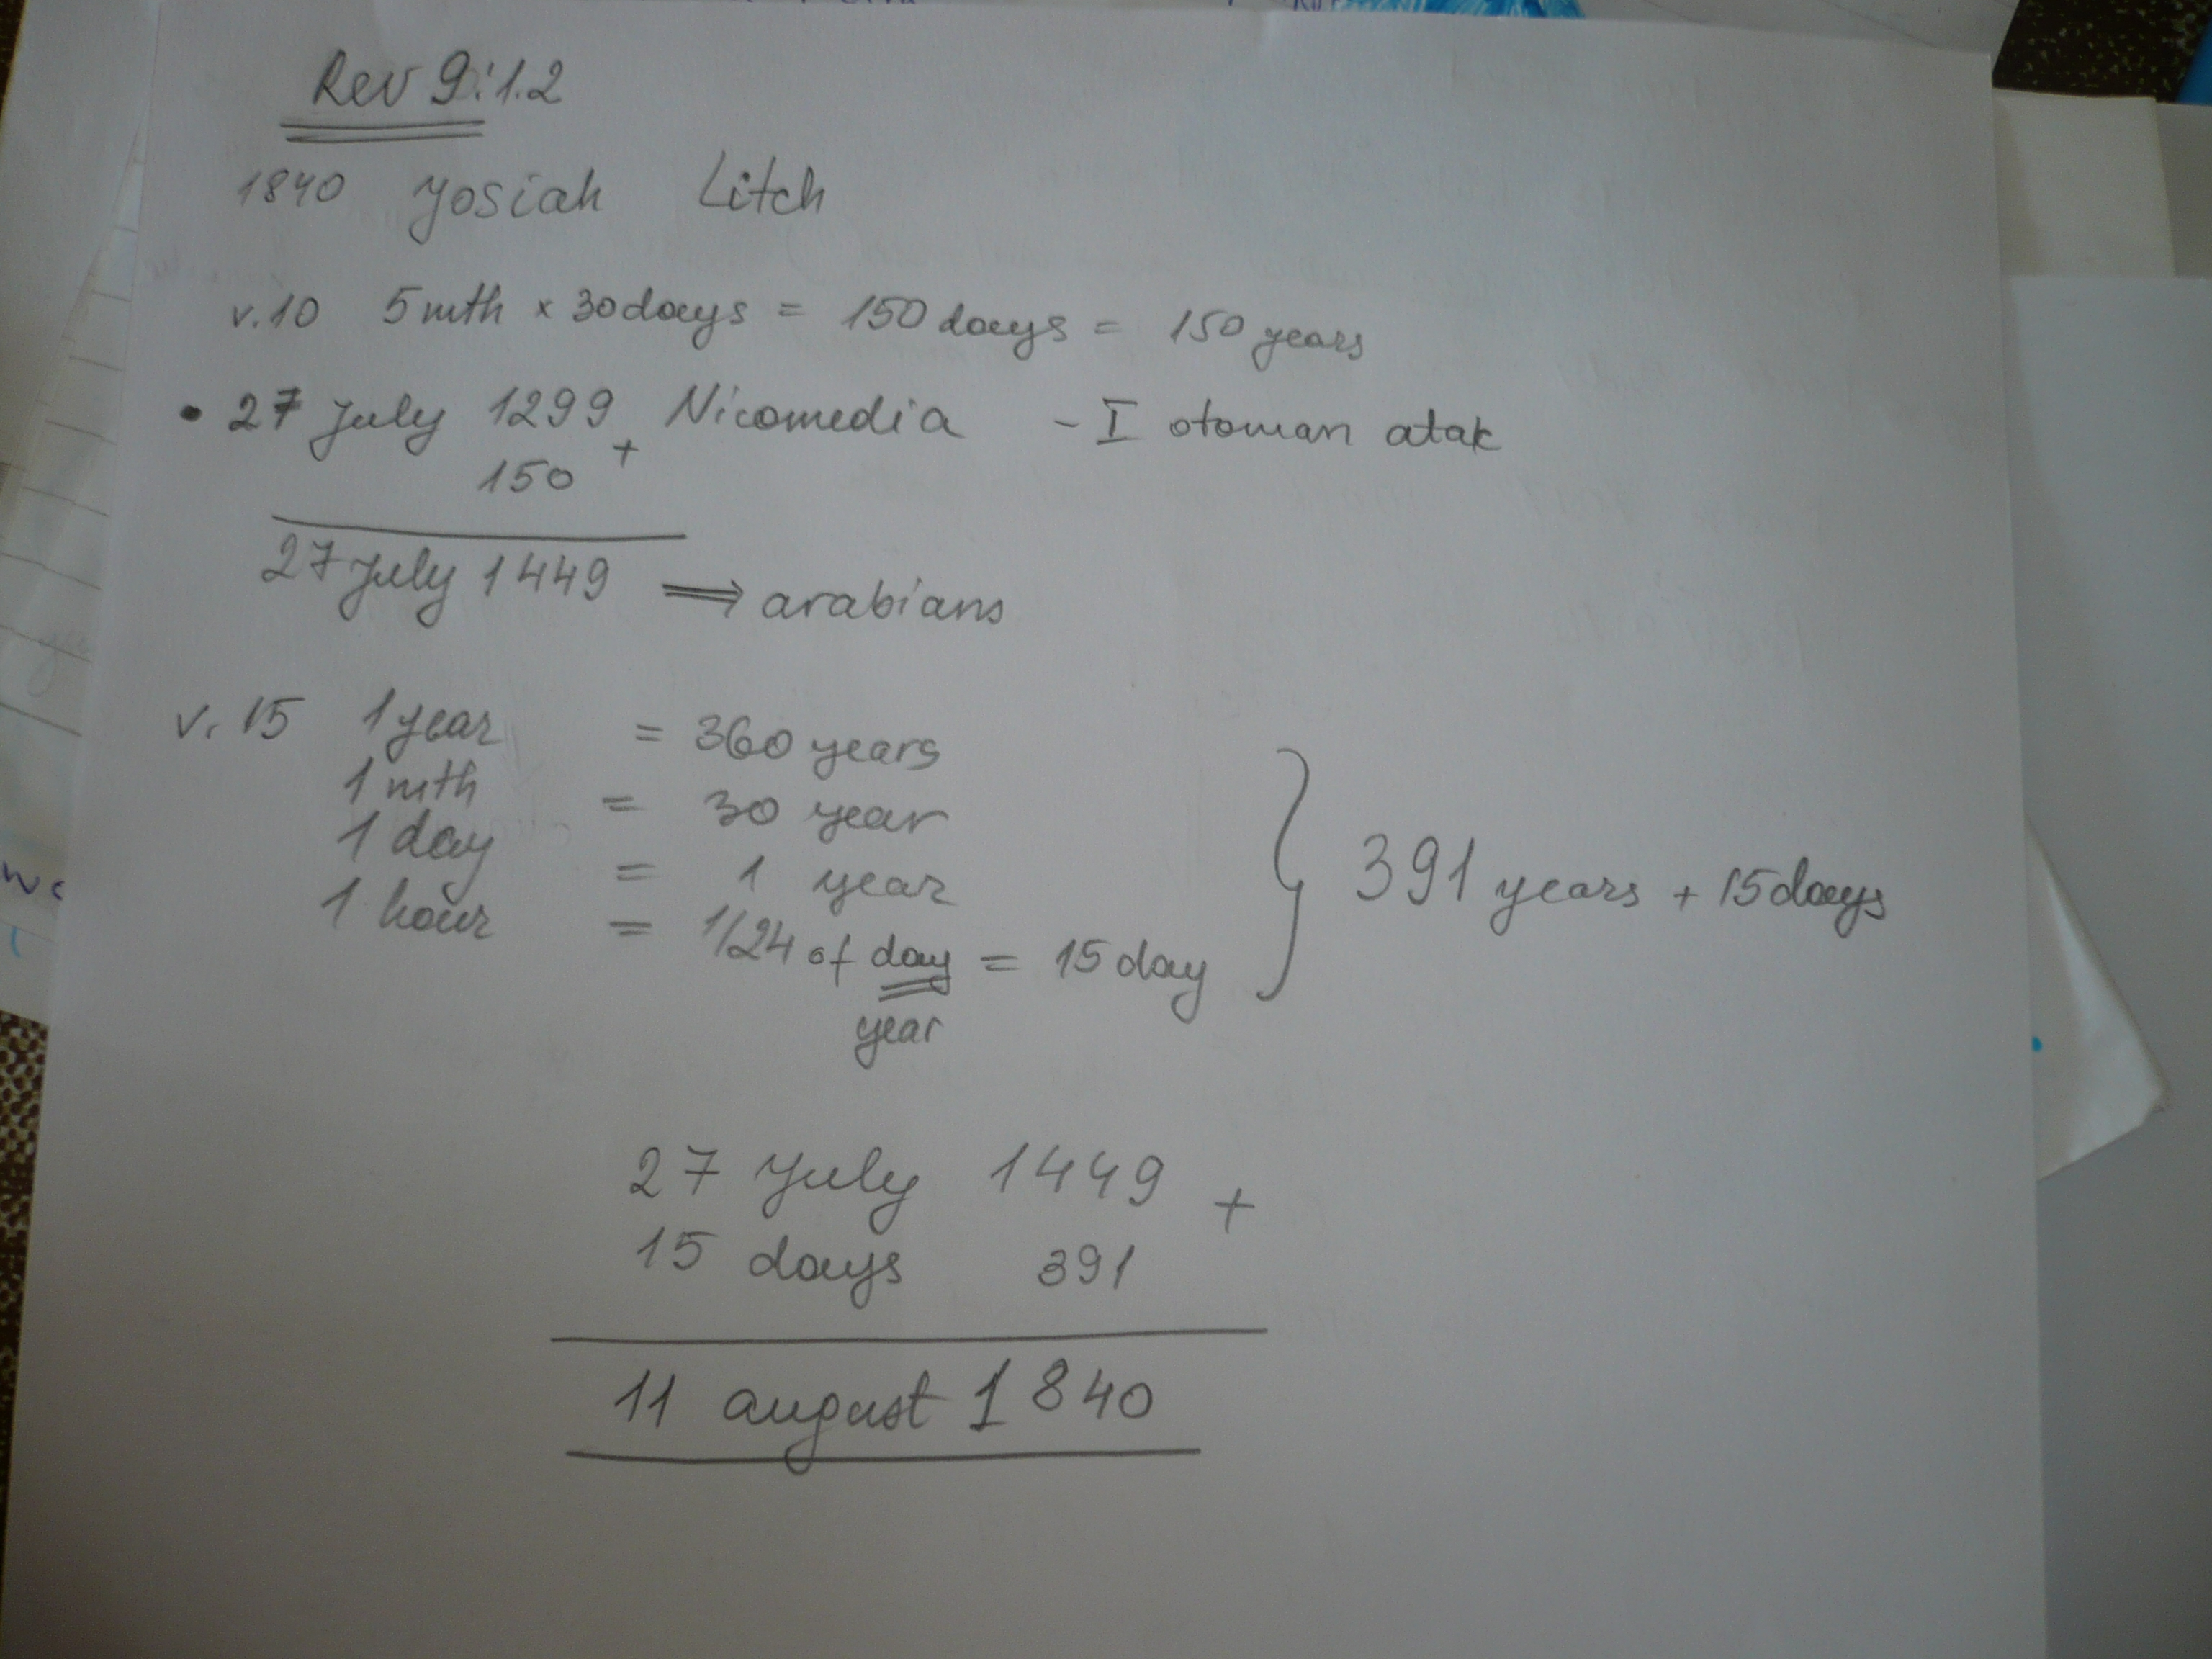 Rev 9:1.2
1840 Josiah Litch
v.10 5 mth × 30 days = 150 days = 150 years
• 27 July 1299 Nicomedia - I otoman atak
150 +
27 July 1449 ⟹ arabians
v. 15 1 year = 360 years
1 mth = 30 year
1 day = 1 year
1 hour = 1/24 of day = 15 day
year
391 years + 15 days
27 July 1449 +
15 days 391
11 august 1840